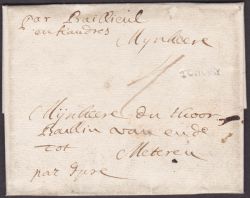 par Baillieul
en flandres
Mynheere
Mÿnheere du Hoor
Baillin van ende
tot Meteren
par Ypre